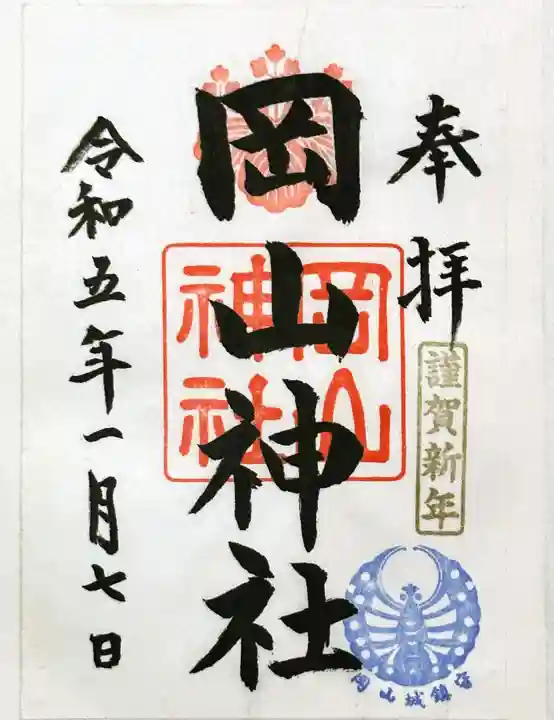 奉拝
謹賀新年
岡山神社
岡山
神社
令和五年一月七日